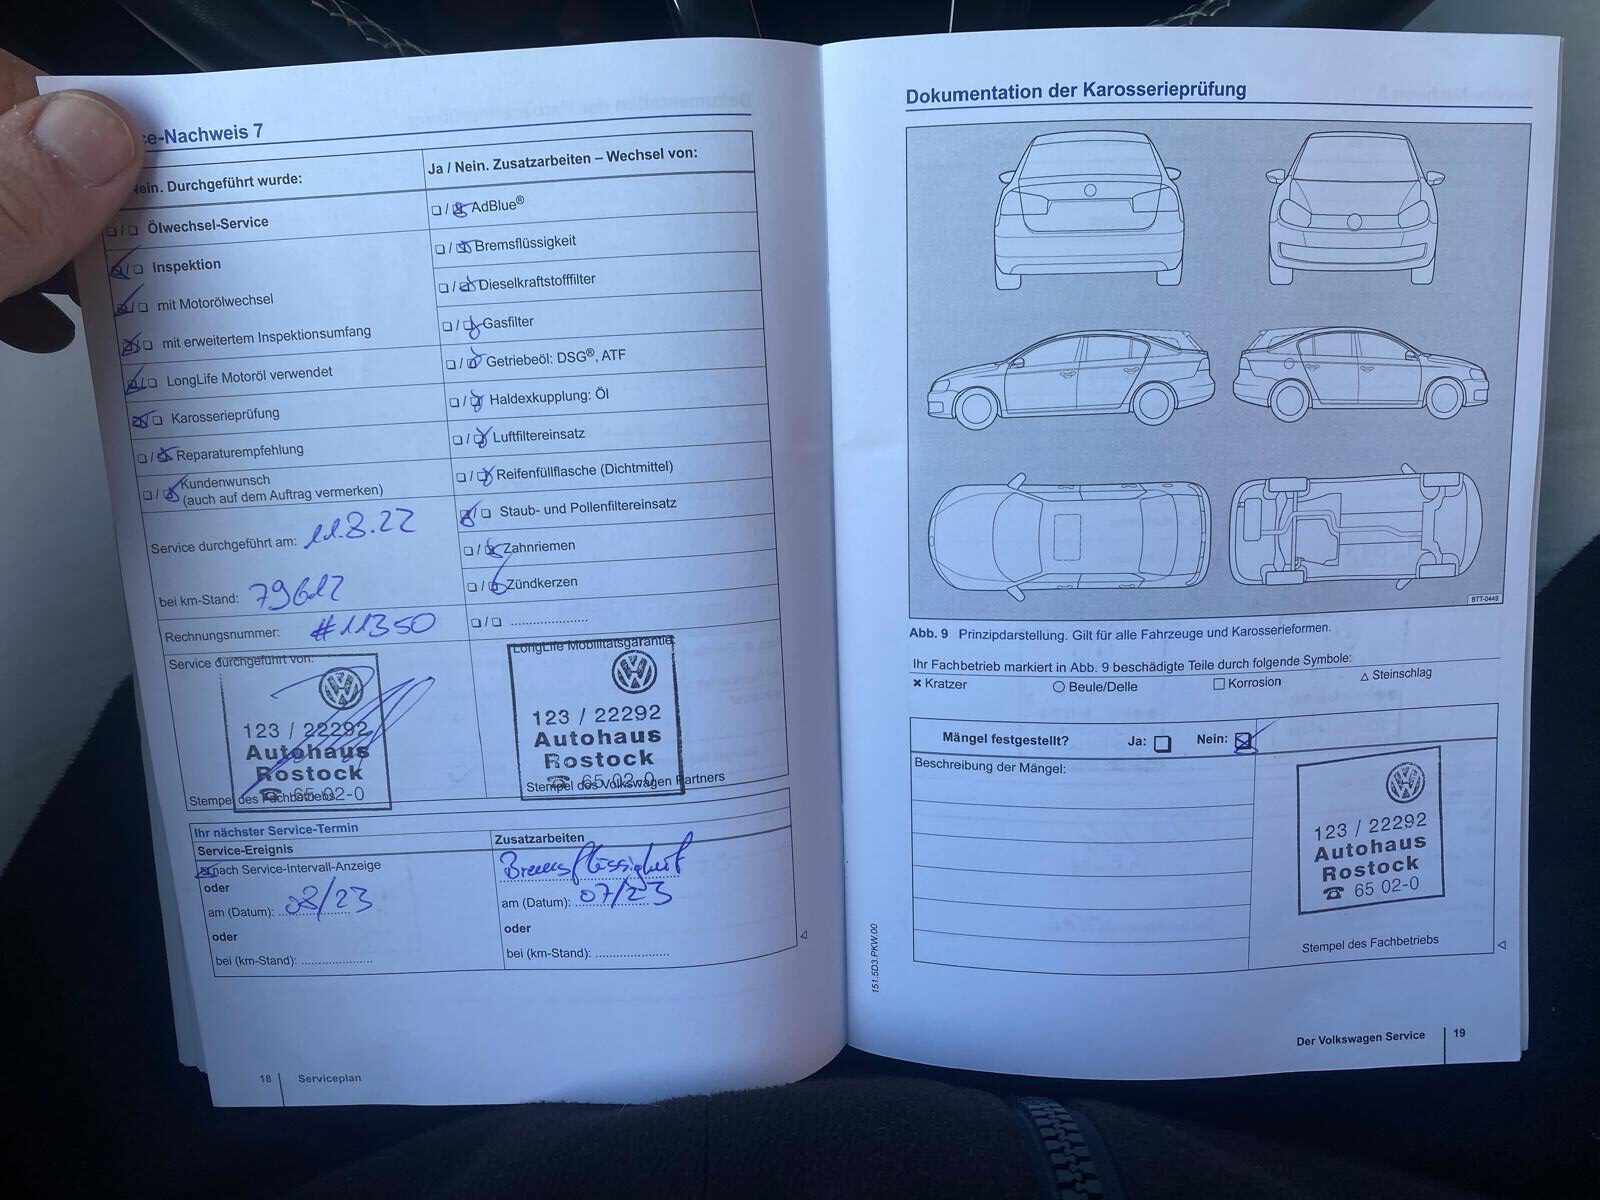 ce-Nachweis 7
ein. Durchgeführt wurde:
Ölwechsel-Service
Inspektion
mit Motorölwechsel
mit erweitertem Inspektionsumfang
LongLife Motoröl verwendet
Karosserieprüfung
Reparaturempfehlung
Kundenwunsch
(auch auf dem Auftrag vermerken)
Service durchgeführt am: 11.8.22
bei km-Stand: 79612
Rechnungsnummer: #11350
Service durchgeführt von:
123 / 22292
Autohaus
Rostock
☎ 65 02-0
Stempel des Fachbetriebs
Ja / Nein. Zusatzarbeiten – Wechsel von:
AdBlue®
Bremsflüssigkeit
Dieselkraftstofffilter
Gasfilter
Getriebeöl: DSG®, ATF
Haldexkupplung: Öl
Luftfiltereinsatz
Reifenfüllflasche (Dichtmittel)
Staub- und Pollenfiltereinsatz
Zahnriemen
Zündkerzen
LongLife Mobilitätsgarantie
123 / 22292
Autohaus
Rostock
☎ 65 02-0
Stempel des Volkswagen Partners
Ihr nächster Service-Termin
Service-Ereignis
nach Service-Intervall-Anzeige
oder
am (Datum): 08/23
oder
bei (km-Stand):
Zusatzarbeiten
Bremsflüssigkeit
am (Datum): 07/23
oder
bei (km-Stand):
18 Serviceplan
Dokumentation der Karosserieprüfung
BTT-0449
Abb. 9 Prinzipdarstellung. Gilt für alle Fahrzeuge und Karosserieformen.
Ihr Fachbetrieb markiert in Abb. 9 beschädigte Teile durch folgende Symbole:
✖ Kratzer ○ Beule/Delle □ Korrosion △ Steinschlag
Mängel festgestellt? Ja: Nein:
Beschreibung der Mängel:
123 / 22292
Autohaus
Rostock
☎ 65 02-0
Stempel des Fachbetriebs
151.5D3.PKW.00
Der Volkswagen Service 19